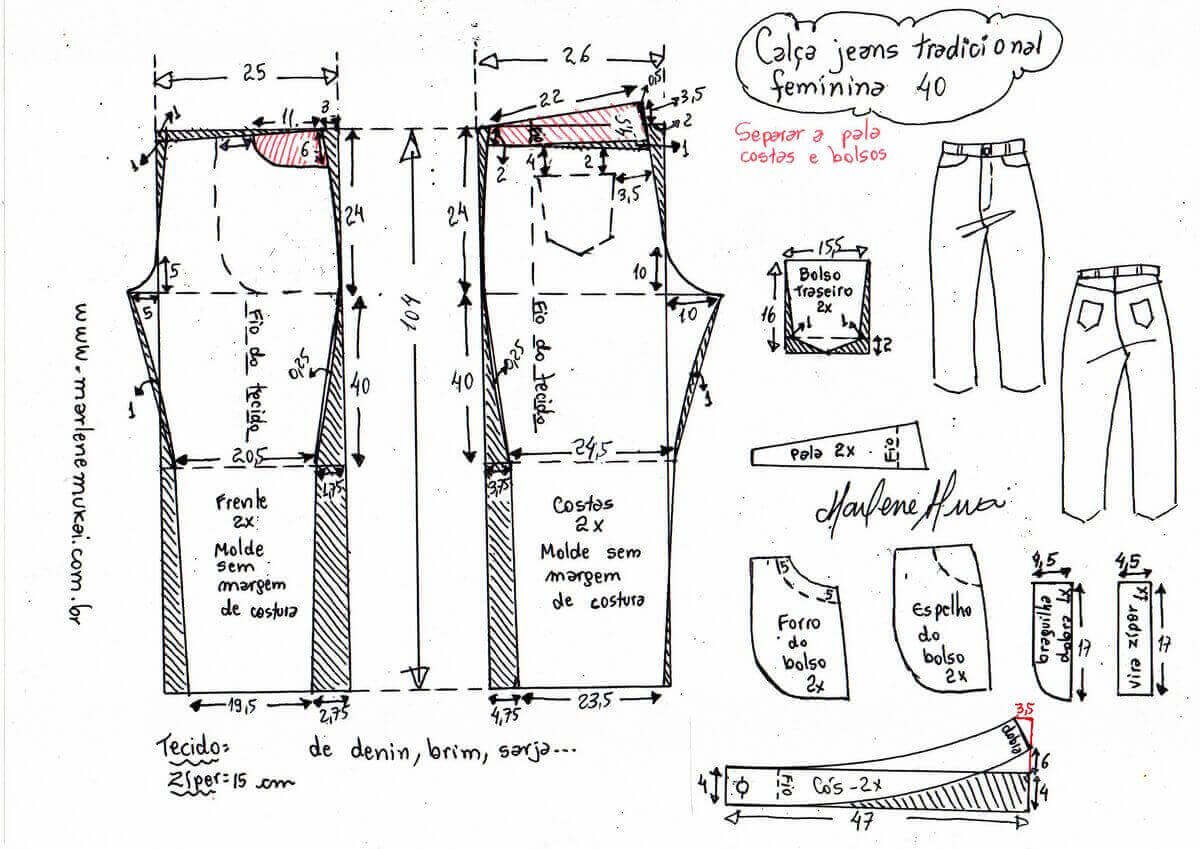 Calça jeans tradicional
feminina 40
Separar a pala
costas e bolsos
25
1
11
3
6
1
24
5
5
Fio do tecido
0,25
40
1
20,5
1,75
Frente
2x
Molde
sem
margem
de costura
19,5
2,75
104
26
22
0,5
3,5
2
4,5
Fio
1
2
4
2
3,5
24
10
10
Fio do tecido
0,25
40
1
24,5
3,75
Costas
2x
Molde sem
margem
de costura
4,75
23,5
www.marlenemukai.com.br
15,5
Bolso
traseiro
2x
16
1
1
2
Pala 2x
Fio
5
5
Forro
do
bolso
2x
Espelho
do
bolso
2x
4,5
braguilha
dobra 1x
17
4,5
vira zíper 1x
17
Tecido: de denin, brim, sarja...
Zíper=15 cm
3,5
dobla
6
4
Fio
Cós-2x
4
47